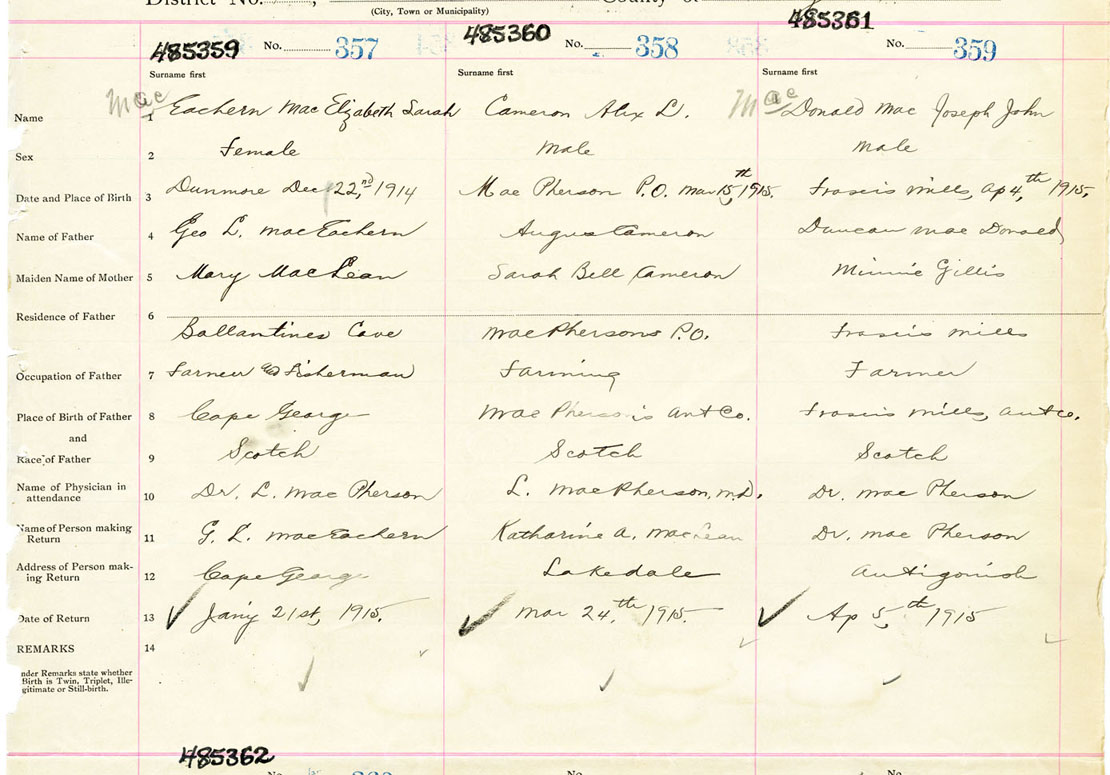 District No. , County of
(City, Town or Municipality)
485359 No. 357 485360 No. 358 485361 No. 359
Surname first Surname first Surname first
Name 1 Mac Eachern Mac Elizabeth Sarah Cameron Alex L. Mac Donald Mac Joseph John
Sex 2 Female Male Male
Date and Place of Birth 3 Dunmore Dec 22nd, 1914 Mac Pherson P.O. Mar 15th, 1915. Frasers Mills, Ap 4th, 1915,
Name of Father 4 Geo L. MacEachern Angus Cameron Duncan Mac Donald
Maiden Name of Mother 5 Mary MacLean Sarah Bell Cameron Minnie Gillis
Residence of Father 6
Ballantines Cove MacPhersons P.O. Frasers Mills
Occupation of Father 7 Farmer & Fisherman Farming Farmer
Place of Birth of Father 8 Cape George Mac Pherson's Ant Co. Frasers Mills, Ant Co.
and
Race of Father 9 Scotch Scotch Scotch
Name of Physician in
attendance 10 Dr. L. Mac Pherson L. MacPherson, M.D. Dr. Mac Pherson
Name of Person making
Return 11 G. L. MacEachern Katharine A. MacLean Dr. Mac Pherson
Address of Person mak-
ing Return 12 Cape George Lakedale Antigonish
Date of Return 13 ✓ Jan'y 21st, 1915. ✓ Mar 24th, 1915. ✓ Ap 5th, 1915
REMARKS 14 ✓ ✓ ✓
nder Remarks state whether
Birth is Twin, Triplet, Ille-
gitimate or Still-birth. ✓ ✓ ✓
485362
No. No. No.